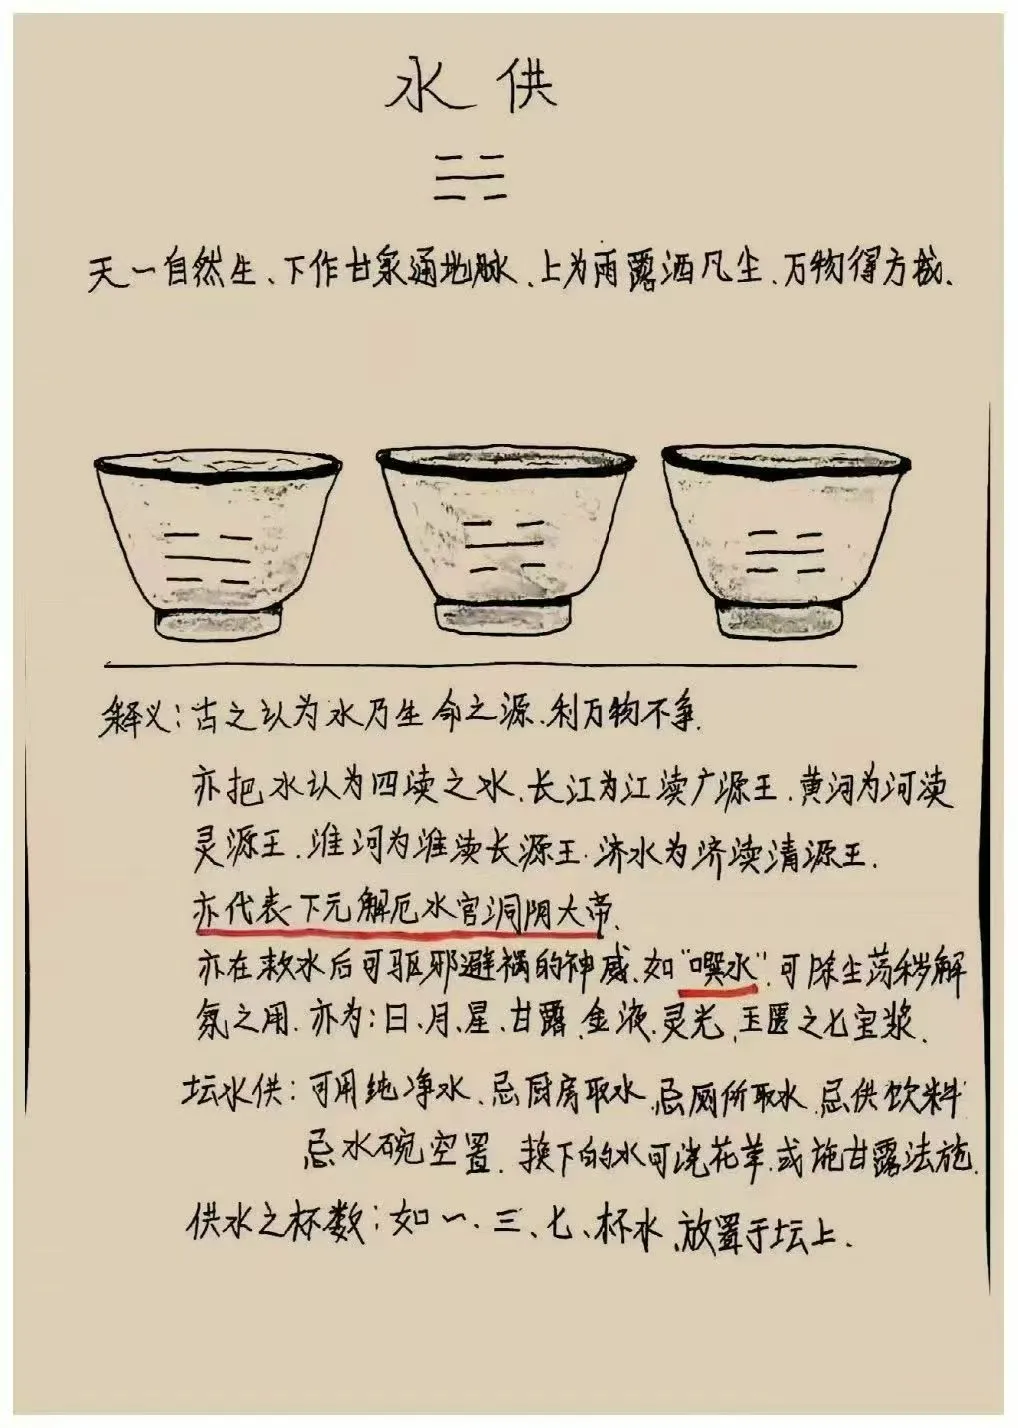 水供
天一自然生、下作甘泉通地脉、上为雨露洒凡尘、万物得方成.
释义：古之认为水乃生命之源.利万物不争.
亦把水认为四渎之水.长江为江渎广源王.黄河为河渎
灵源王.淮河为淮渎长源王.济水为济渎清源王.
亦代表下元解厄水官洞阴大帝.
亦在敕水后可驱邪避祸的神威.如"噀水".可除尘荡秽解
氛之用.亦为：日、月、星、甘露、金液.灵光.玉匮之七宝浆.
坛水供：可用纯净水、忌厨房取水.忌厕所取水.忌供饮料
忌水碗空置.换下的水可浇花草.或施甘露法施.
供水之杯数：如一、三、七、杯水、放置于坛上.